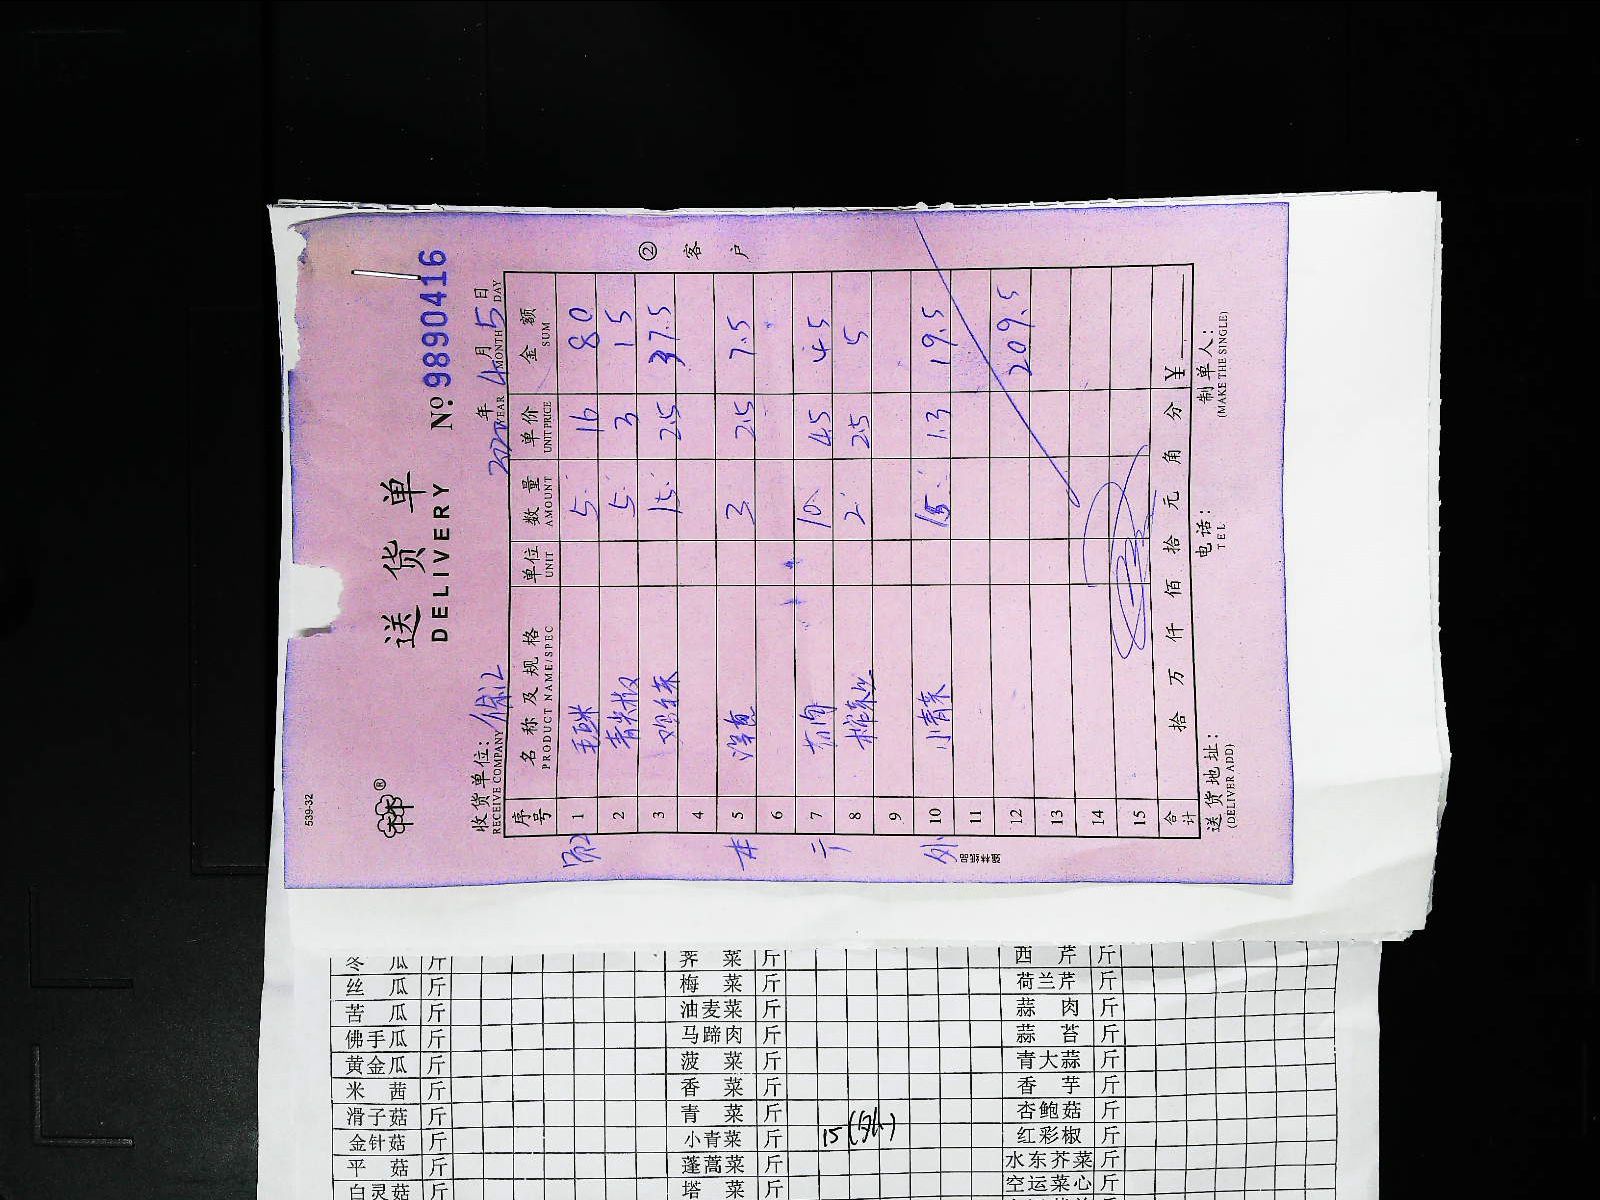 539-32
送货单
DELIVERY
No. 9890416
收货单位:
RECEIVE COMPANY
年 4月 5日
YEAR MONTH DAY
② 客户
序号 名称及规格 单位 数量 单价 金额
PRODUCT NAME/SPEC UNIT AMOUNT UNIT PRICE SUM
1 玉米 5 16 80
2 青尖椒 5 3 15
3 鸡毛菜 15 2.5 37.5
4
5 洋葱 3 2.5 7.5
6
7 10 4.5 45
8 榨菜丝 2 2.5 5
9
外 10 小青菜 15 1.3 19.5
11
12 209.5
13
14
15
合计 拾 万 仟 佰 拾 元 角 分 ¥
送货地址: 电话: 制单人:
(DELIVER ADD) TEL (MAKE THE SINGLE)
强林纸品
冬瓜 斤 荠菜 斤 西芹 斤
丝瓜 斤 梅菜 斤 荷兰芹 斤
苦瓜 斤 油麦菜 斤 蒜肉 斤
佛手瓜 斤 马蹄肉 斤 蒜苔 斤
黄金瓜 斤 菠菜 斤 青大蒜 斤
米茜 斤 香菜 斤 香芋 斤
滑子菇 斤 青菜 斤 杏鲍菇 斤
金针菇 斤 小青菜 斤 15(外) 红彩椒 斤
平菇 斤 蓬蒿菜 斤 水东芥菜 斤
白灵菇 斤 塔菜 斤 空运菜心 斤